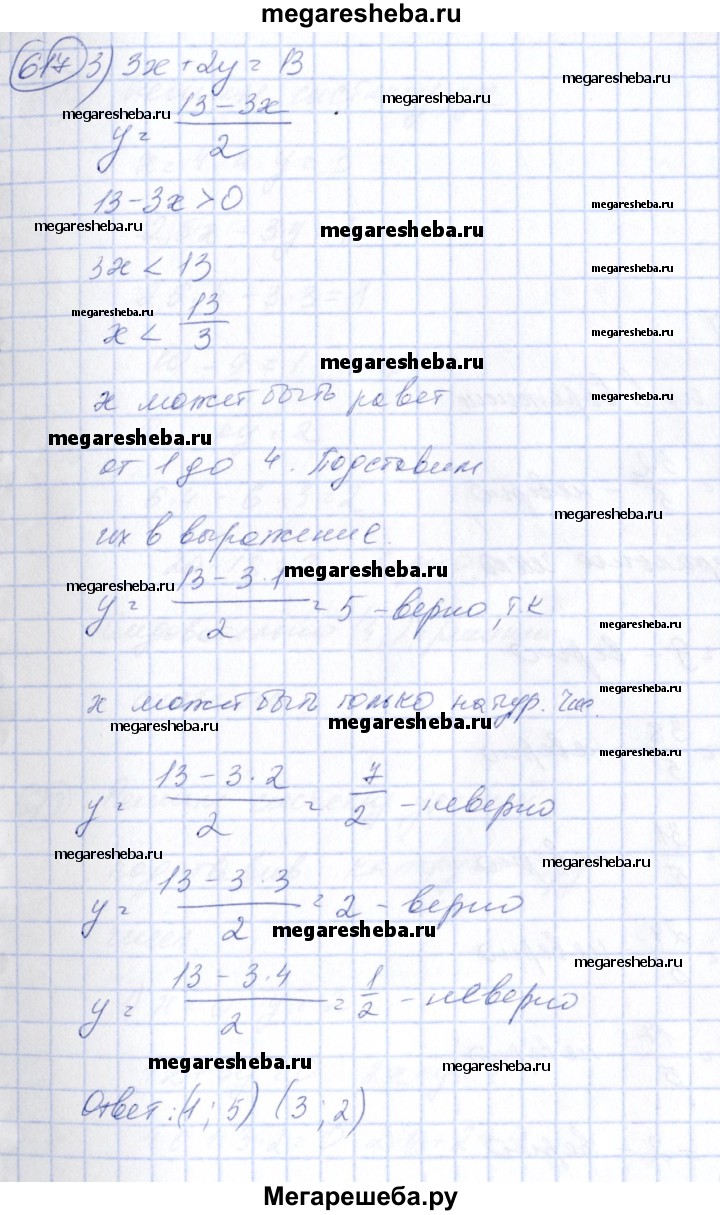 megaresheba.ru
617 3) 3x + 2y = 13
megaresheba.ru
megaresheba.ru
y = (13 - 3x)/2
13 - 3x > 0
megaresheba.ru
megaresheba.ru
megaresheba.ru
3x < 13
megaresheba.ru
megaresheba.ru
x < 13/3
megaresheba.ru
megaresheba.ru
x может быть равет
megaresheba.ru
megaresheba.ru
от 1 до 4. Подставим
megaresheba.ru
их в выражение.
megaresheba.ru
megaresheba.ru
y = (13 - 3·1)/2 = 5 - верно, т.к
megaresheba.ru
x может быт только натур. чис.
megaresheba.ru
megaresheba.ru
megaresheba.ru
megaresheba.ru
y = (13 - 3·2)/2 = 7/2 - неверно
megaresheba.ru
megaresheba.ru
y = (13 - 3·3)/2 = 2 - верно
megaresheba.ru
megaresheba.ru
y = (13 - 3·4)/2 = 1/2 - неверно
megaresheba.ru
megaresheba.ru
Ответ: (1; 5) (3; 2)
megaresheba.ru
Мегарешеба.ру